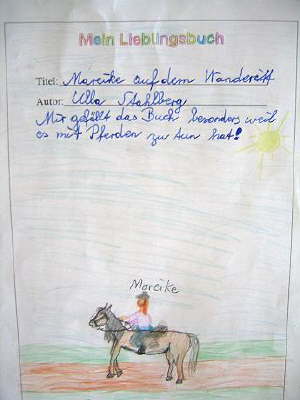 Mein Lieblingsbuch
Titel: Mareike auf dem Wanderritt
Autor: Ulla Stahlberg
Mir gefällt das Buch besonders weil
es mit Pferden zu tun hat!
Mareike